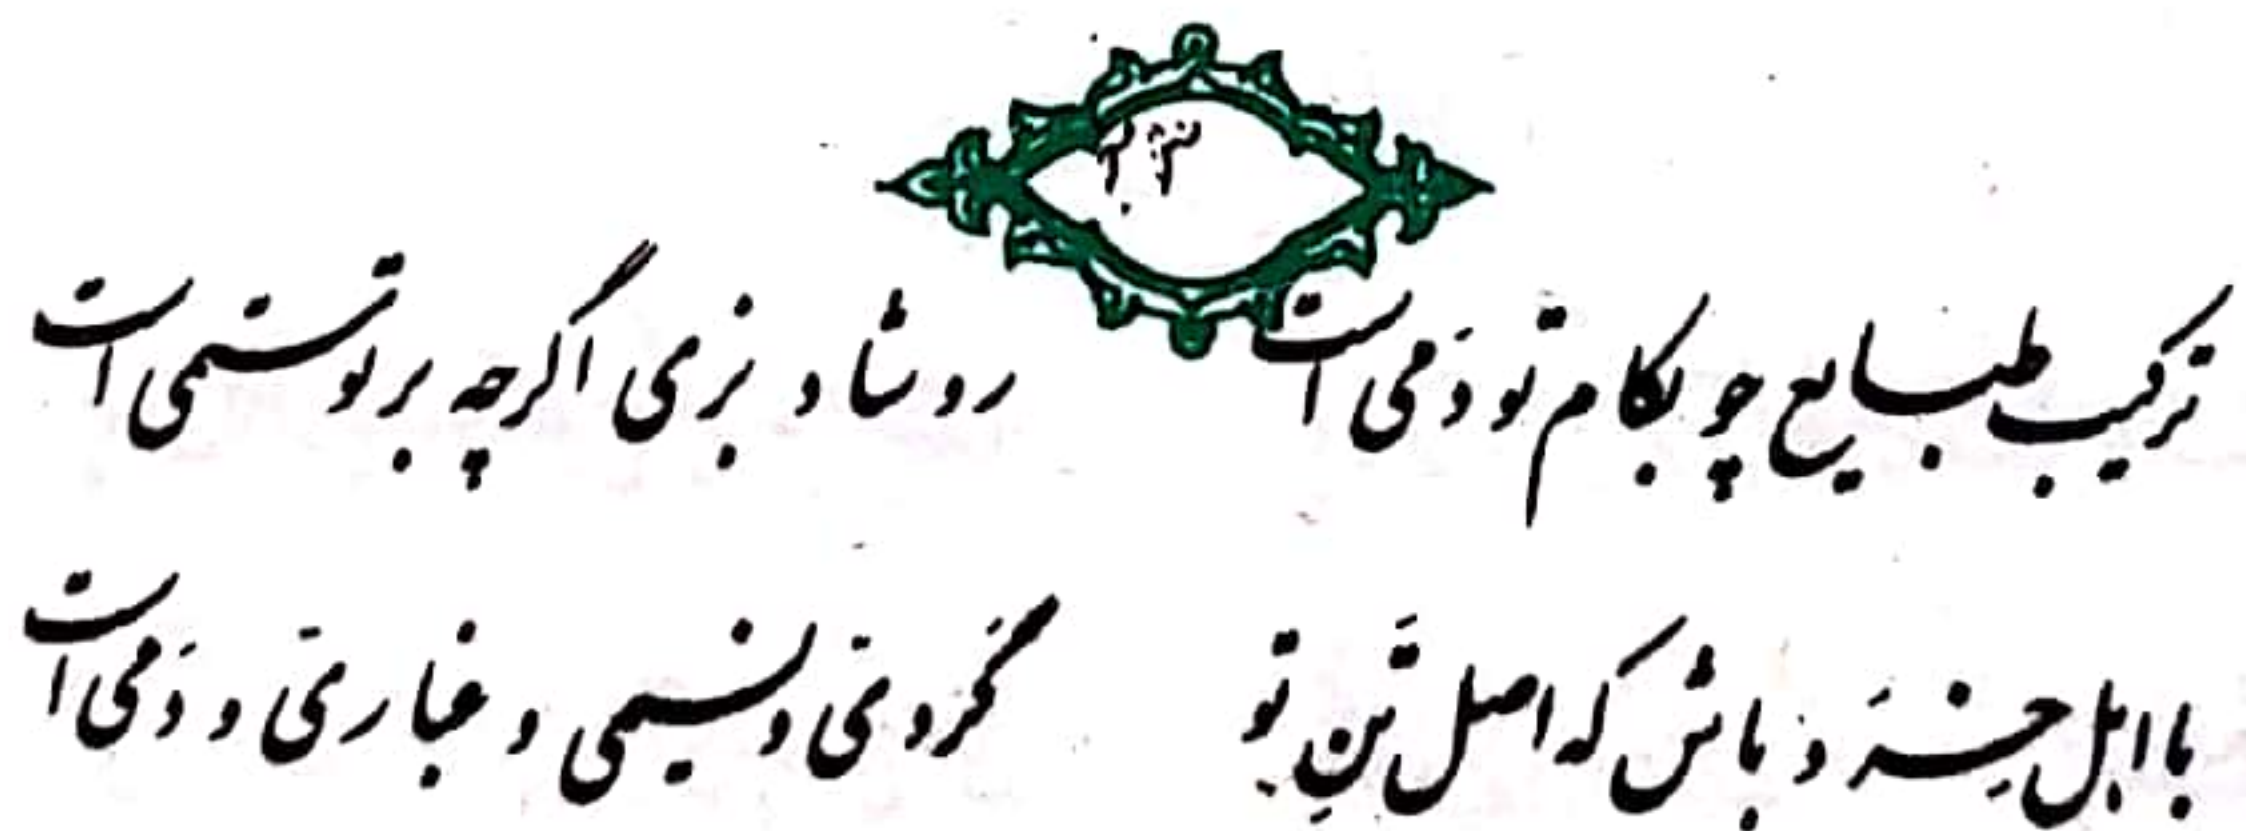 ۲۳
ترکیب طبایع چو بکام تو دَمی است رو شاد بزی اگرچه بر تو ستمی است
با اهل خِرَد باش که اصل تَنِ تو گَردی و نسیمی و غباری و دَمی است